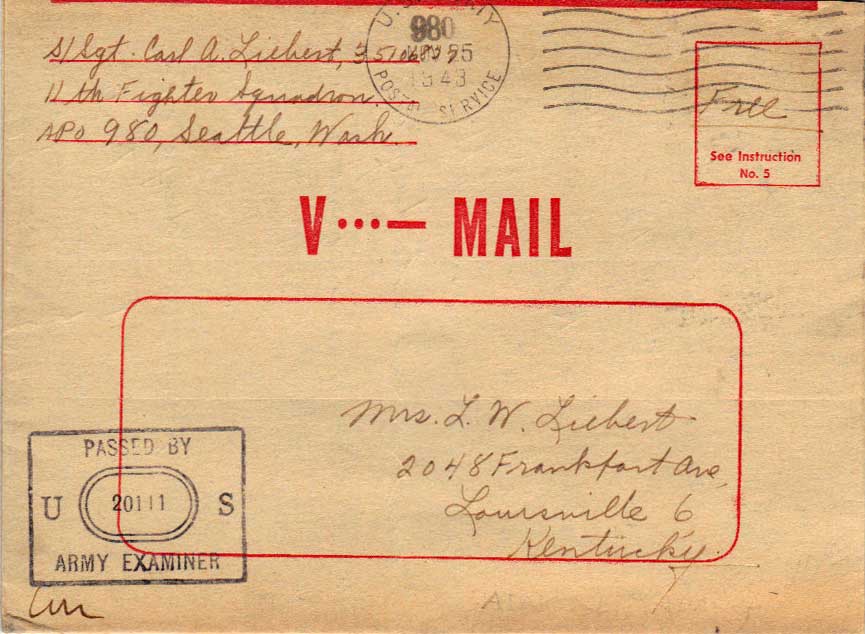 U.S. ARMY
980
NOV 25
1943
POSTAL SERVICE
S/Sgt. Carl A. Liebert,
11th Fighter Squadron
APO 980, Seattle, Wash.
Free
See Instruction
No. 5
V ···— MAIL
Mrs. L. W. Liebert
2048 Frankfort Ave,
Louisville 6
Kentucky.
PASSED BY
U 20111 S
ARMY EXAMINER